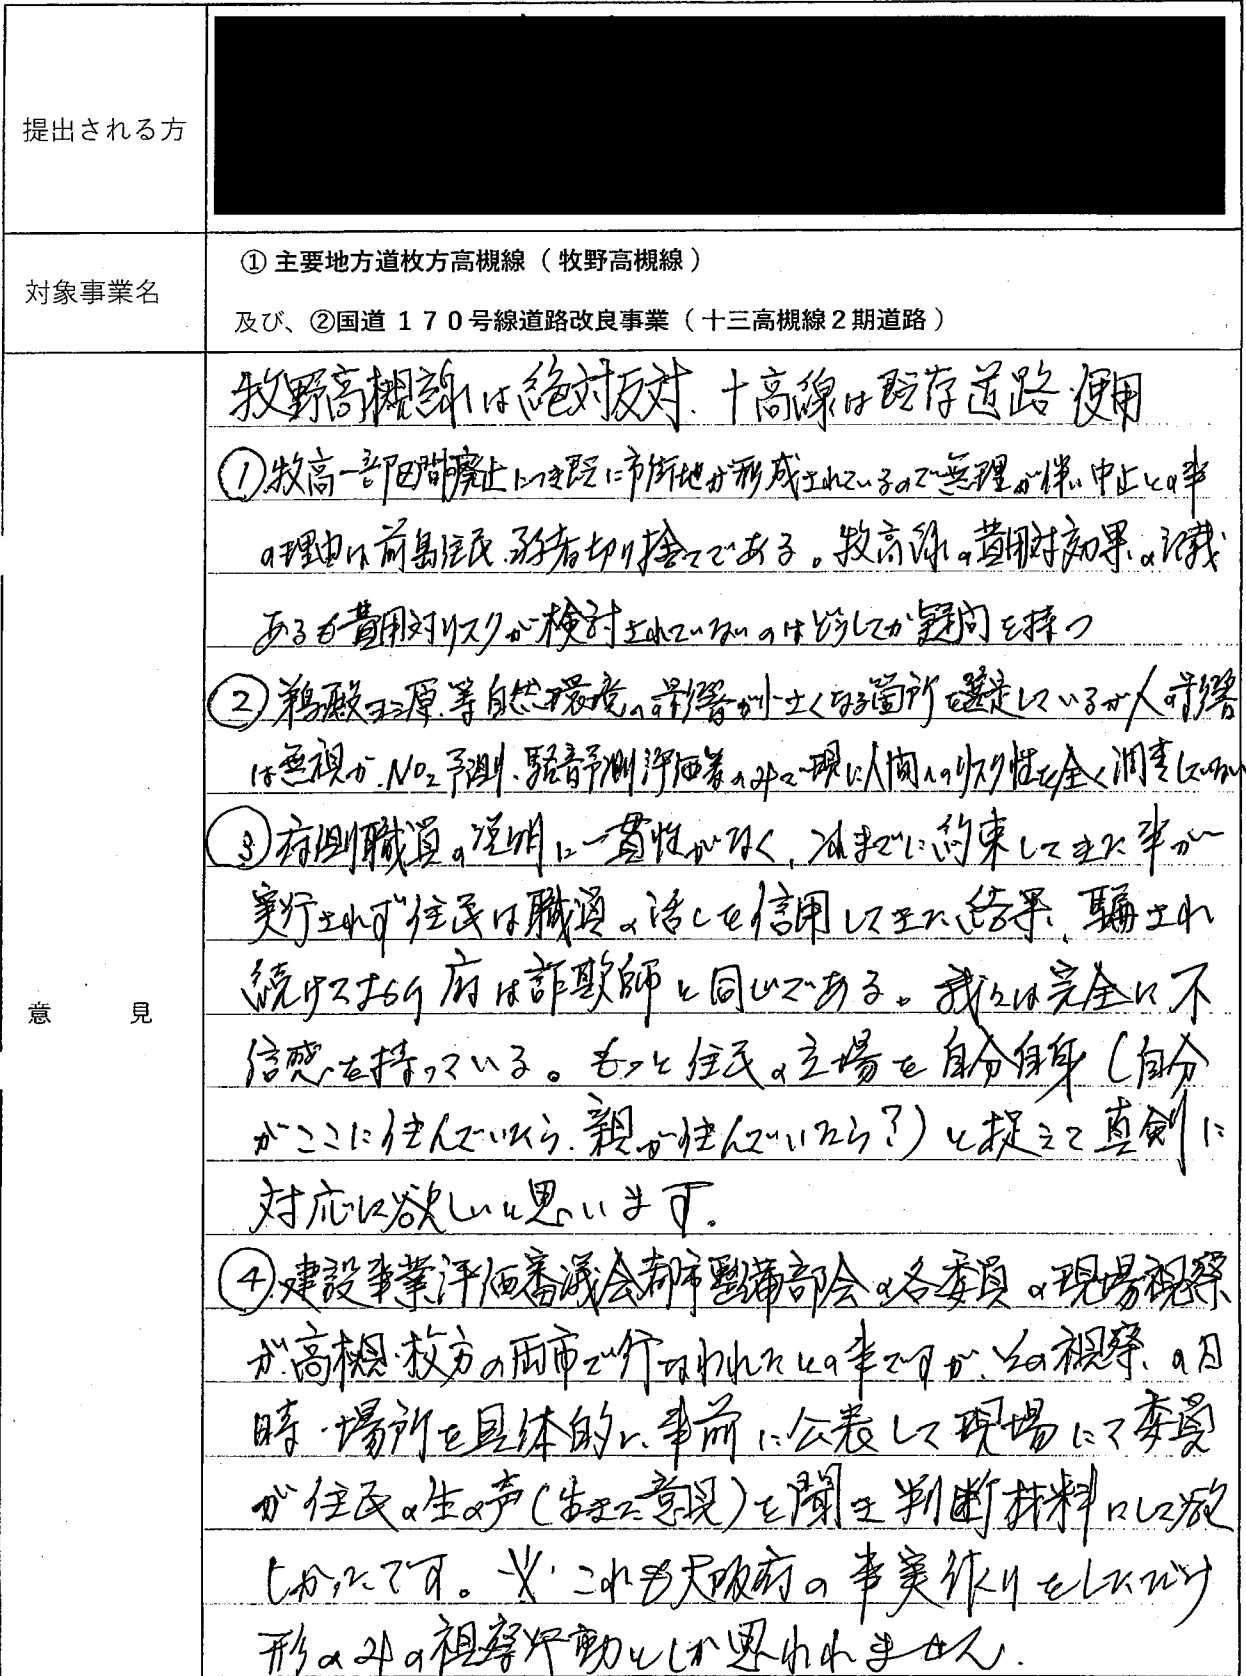 提出される方
対象事業名
① 主要地方道枚方高槻線（牧野高槻線）
及び、②国道１７０号線道路改良事業（十三高槻線２期道路）
意見
牧野高槻線は絶対反対、十高線は既存道路使用
① 牧高一部区間廃止につき既に市街地が形成されているので無理が伴い中止との事
の理由は前島住民、弱者切り捨てである。牧高線の費用対効果の記載
あるも費用対リスクが検討されていないのはどうしてか疑問を持つ
② 鵜殿ヨシ原、等自然環境への影響が小さくなる箇所を選定しているが人の影響
は無視か、NO2予測、騒音予測評価等のみで現に人間へのリスク性を全く調査していない
③ 府側職員の説明に一貫性がなく、これまでに約束してきた事が
実行されず住民は職員の話しを信用してきた結果、騙され
続けており府は詐欺師と同じである。我々は完全に不
信感を持っている。もっと住民の立場を自分自身（自分
がここに住んでいたら、親が住んでいたら？）と捉えて真剣に
対応して欲しいと思います。
④ 建設事業評価審議会都市整備部会の各委員の現場視察
が高槻、枚方の両市で行なわれたとの事ですが、その視察の日
時・場所を具体的に、事前に公表して現場にて委員
が住民の生の声（生きた意見）を聞き判断材料にして欲
しかったです。※これも大阪府の事実作りをしただけ
形のみの視察行動としか思われません。